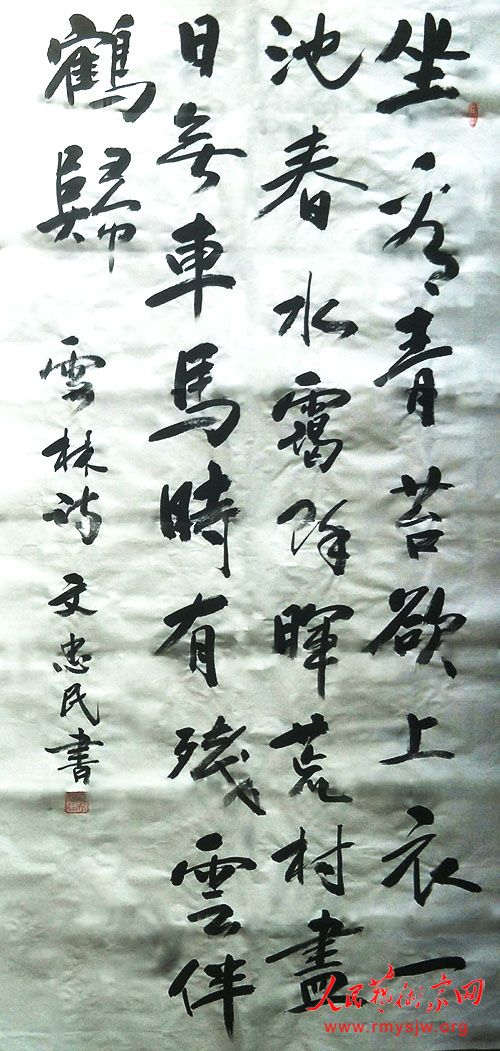 坐看青苔欲上衣一
池春水靄餘暉荒村盡
日無車馬時有殘雲伴
鶴歸 雲林詩 文忠民書
人民藝術家网
www.rmysjw.org